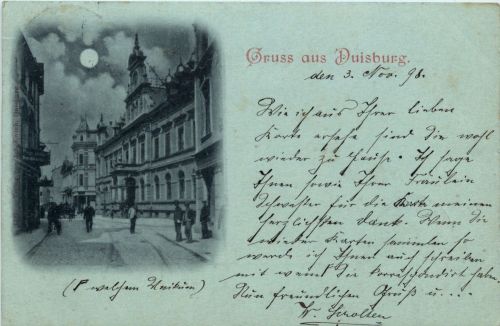 Gruss aus Duisburg.
den 3. Nov. 98.
Wie ich aus Ihrer lieben
Karte ersehe sind die wohl
wieder zu Hause. Ich sage
Ihnen sowie Ihrer Fräulein
Schwester für die Karte meinen
herzlichsten Dank. Wenn die
wieder Karten sammlen so
werde ich Ihnen auch schreiben
mit wem die korrespondirt habe.
Nun freundlichen Gruß u....
W. Scholten
(P welchem Unikum)